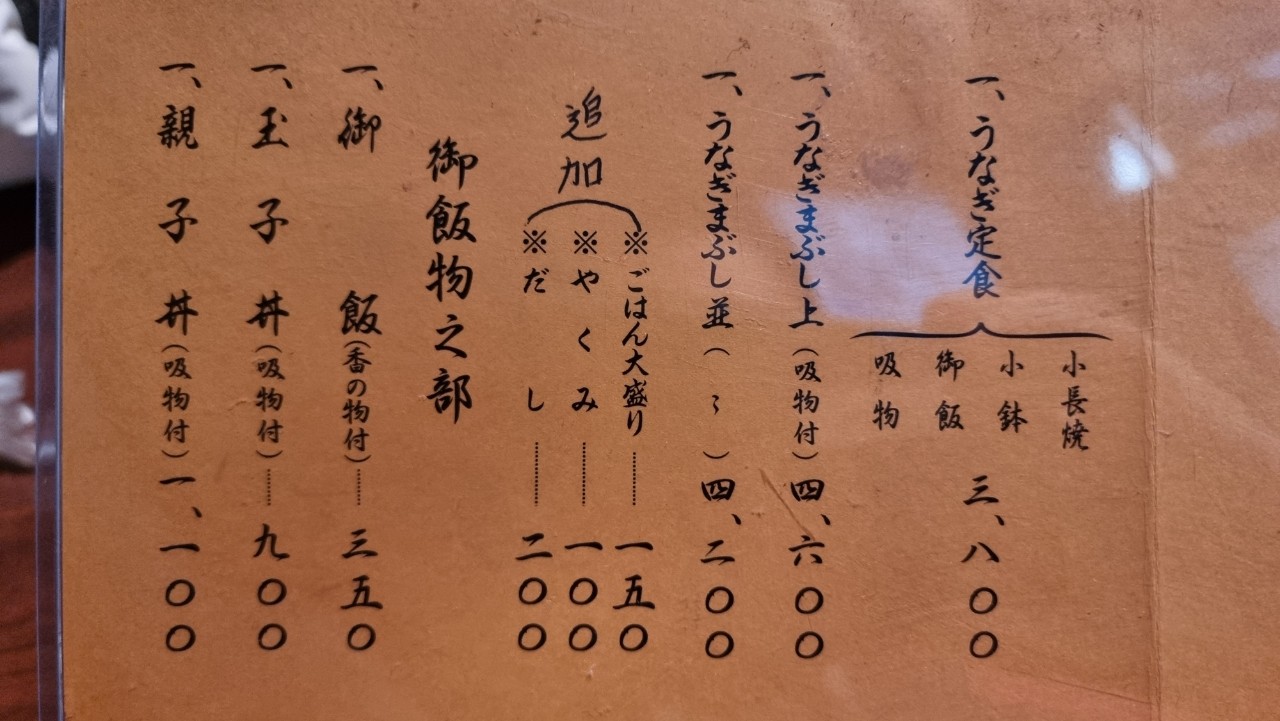 一、うなぎ定食
小長焼
小鉢
御飯
吸物
三、八〇〇
一、うなぎまぶし上(吸物付)四、六〇〇
一、うなぎまぶし並(〃)四、二〇〇
追加
※ごはん大盛り………一五〇
※やくみ………一〇〇
※だし………二〇〇
御飯物之部
一、御飯(番の物付)……三五〇
一、玉子丼(吸物付)……九〇〇
一、親子丼(吸物付)一、一〇〇